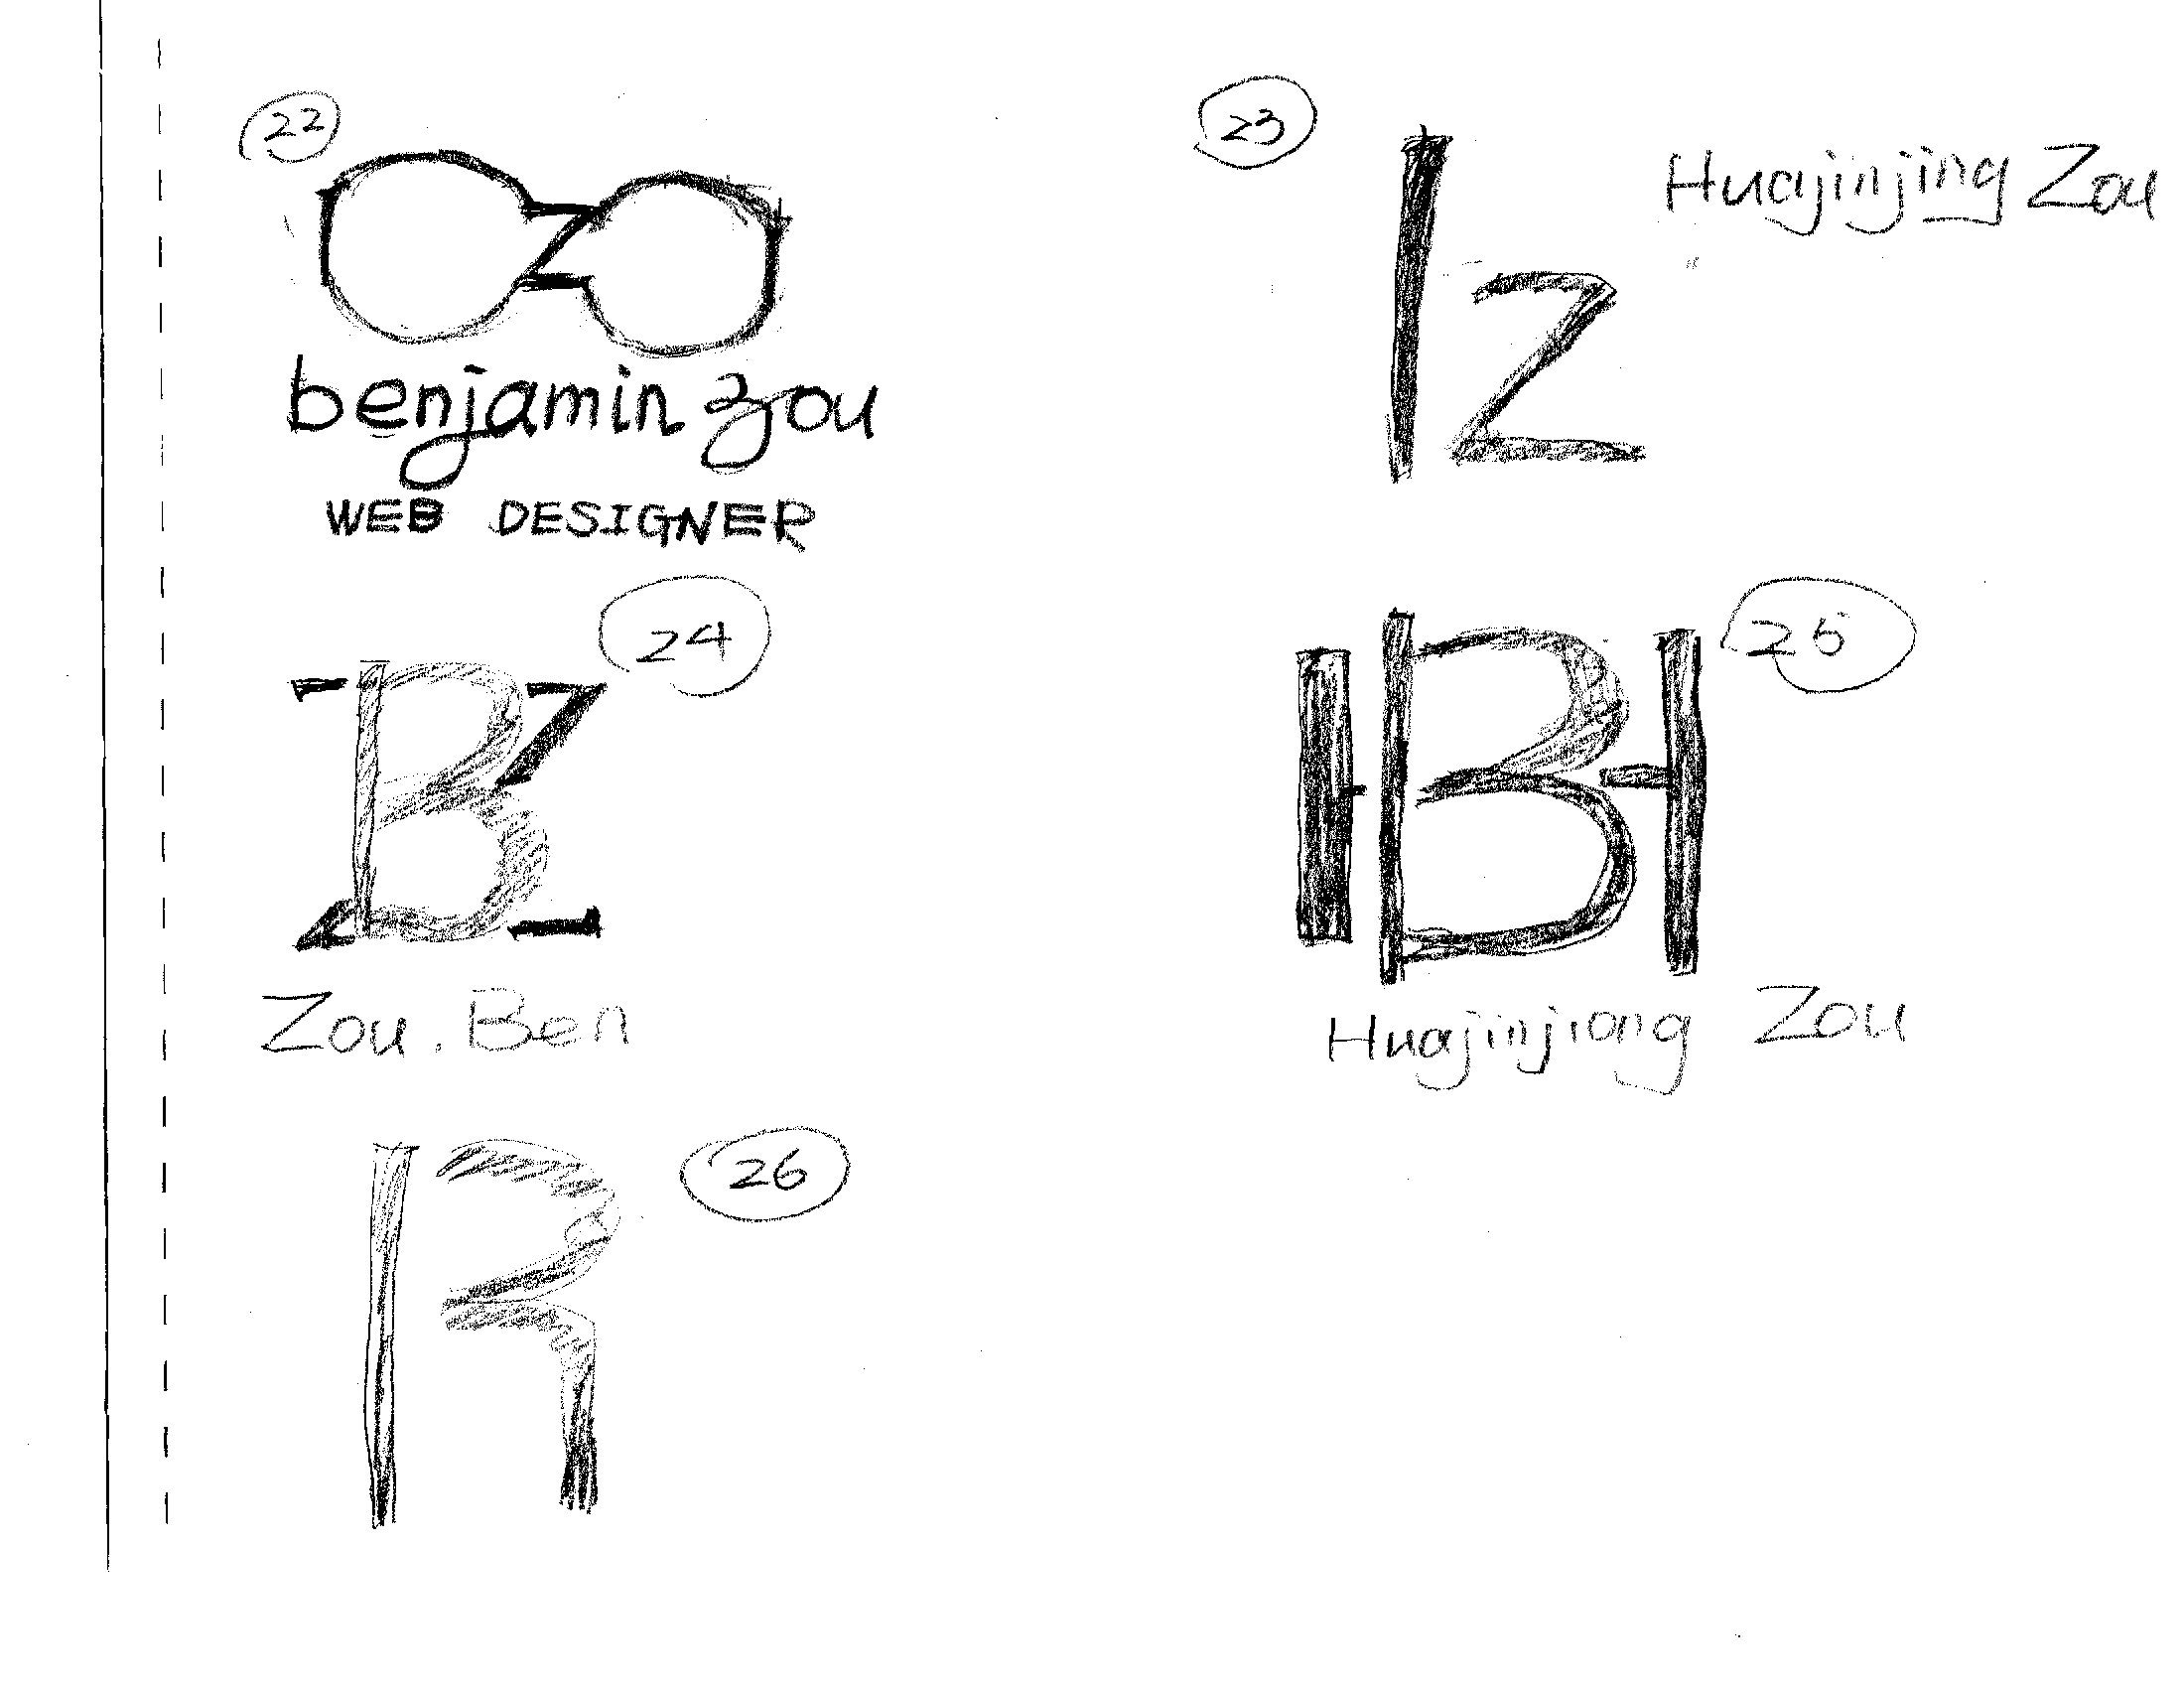 22
benjamin zou
WEB DESIGNER
23
Iz
Huajinjing Zou
24
BZ
Zou. Ben
25
HBH
Huajinjiang Zou
26
R